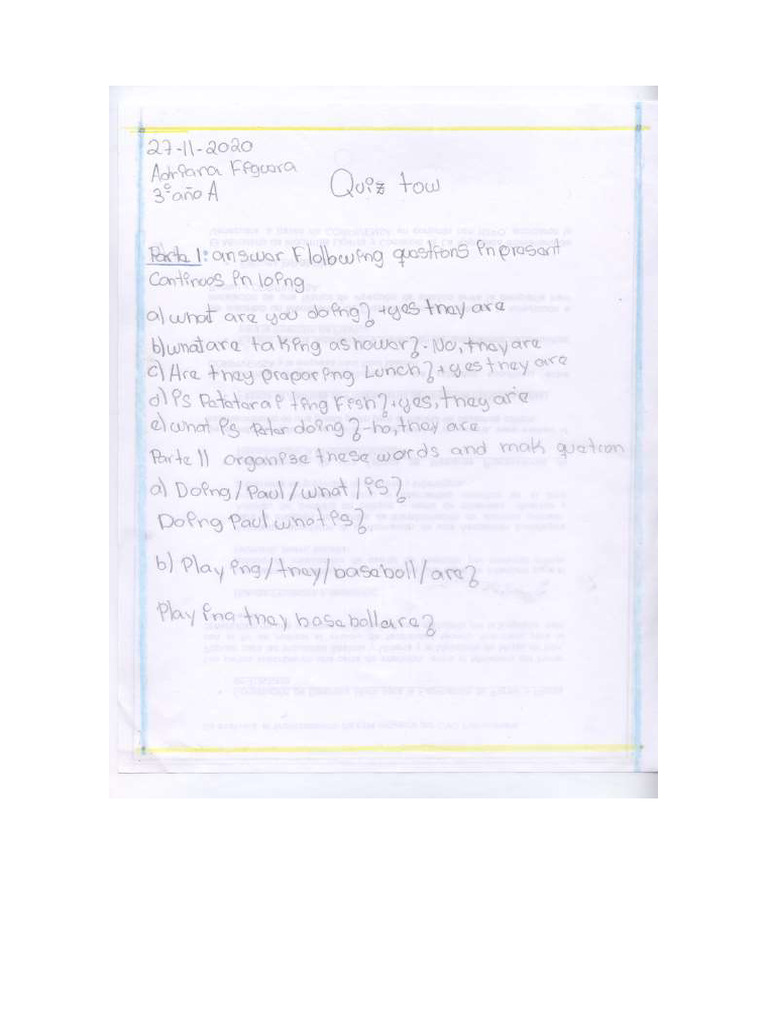 27-11-2020
Adriana Figuera
3º año A
Quiz tow
Parte 1: answer Flollowing questions in present
Continuos in loing
a) what are you doing? + yes they are
b) what are taking ashower? - No, they are
c) Are they preparing Lunch? + yes they are
d) is Peter fting Fish? + yes, they are
e) what is Peter doing? - no, they are
Parte 11 organise these words and mak quetion
a) Doing / Paul / what / is?
Doing Paul what is?
b) Play ing / they / baseboll / are?
Play ing they baseboll are?